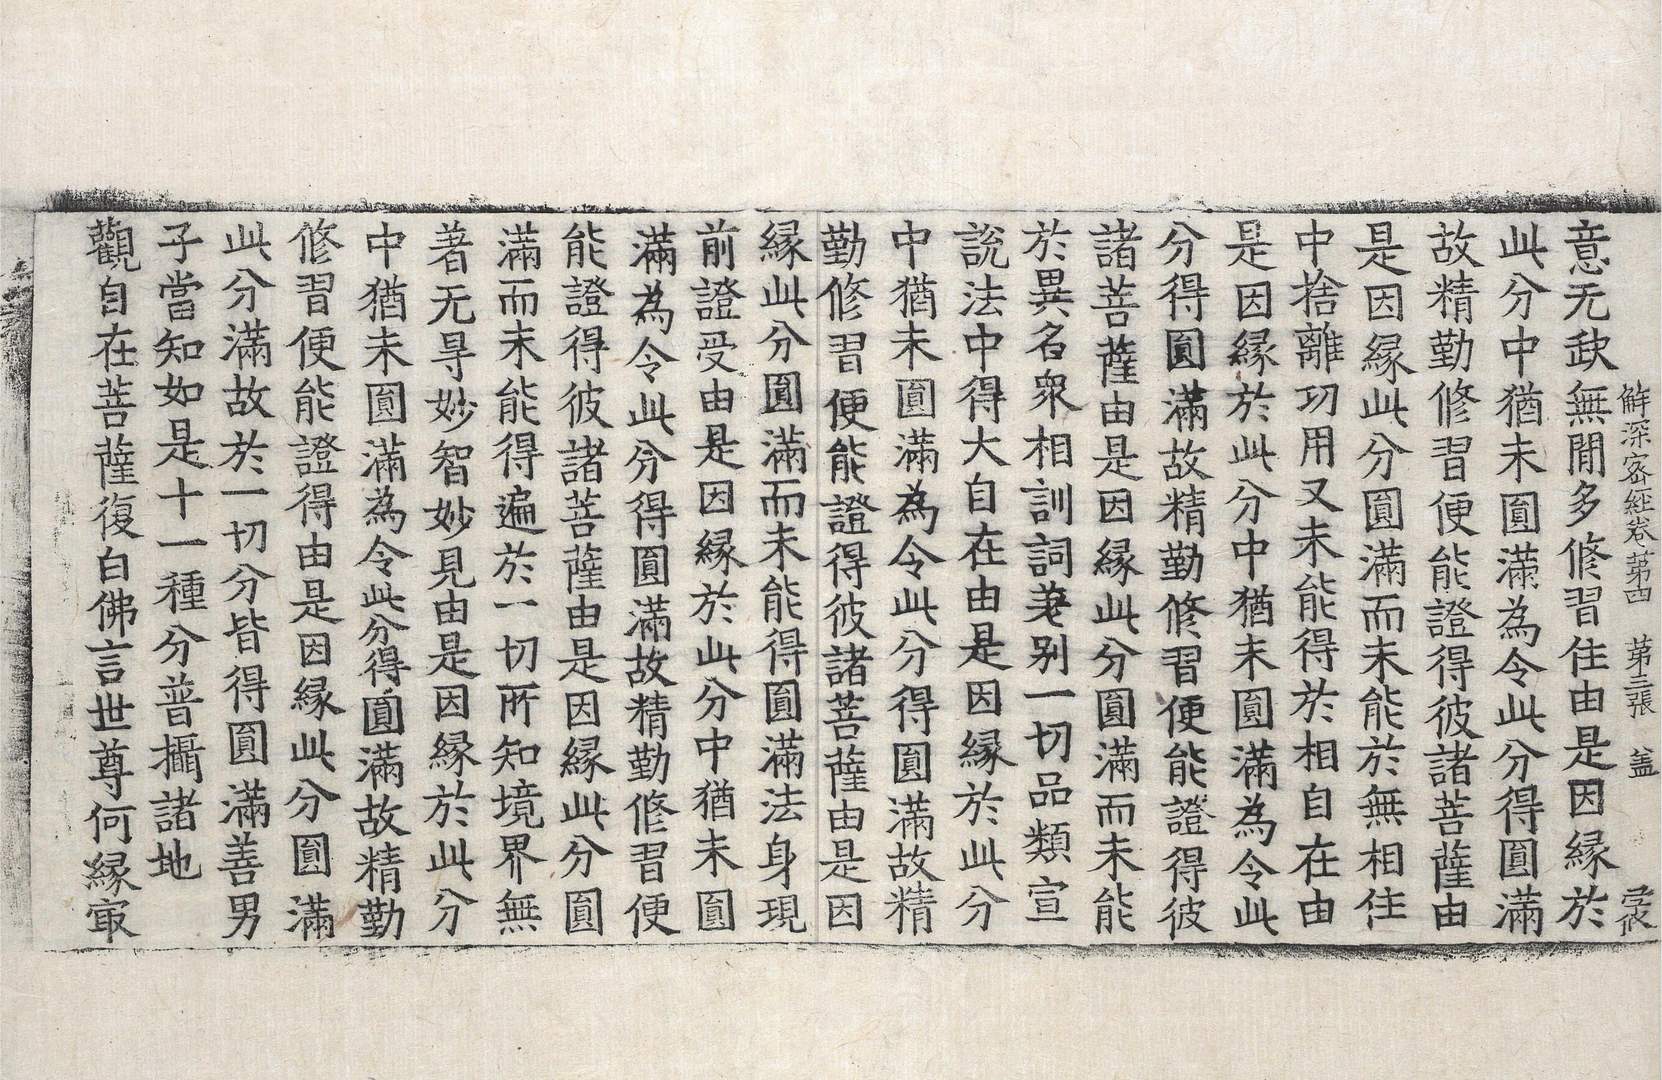 解深密經卷第四 第三張 盖
意无缺無間多修習住由是因緣於
此分中猶未圓滿為令此分得圓滿
故精勤修習便能證得彼諸菩薩由
是因緣此分圓滿而未能於無相住
中捨離功用又未能得於相自在由
是因緣於此分中猶未圓滿為令此
分得圓滿故精勤修習便能證得彼
諸菩薩由是因緣此分圓滿而未能
於異名衆相訓詞差别一切品類宣
說法中得大自在由是因緣於此分
中猶未圓滿為令此分得圓滿故精
勤修習便能證得彼諸菩薩由是因
緣此分圓滿而未能得圓滿法身現
前證受由是因緣於此分中猶未圓
滿為令此分得圓滿故精勤修習便
能證得彼諸菩薩由是因緣此分圓
滿而未能得遍於一切所知境界無
著无㝵妙智妙見由是因緣於此分
中猶未圓滿為令此分得圓滿故精勤
修習便能證得由是因緣此分圓滿
此分滿故於一切分皆得圓滿善男
子當知如是十一種分普攝諸地
觀自在菩薩復白佛言世尊何緣㝡